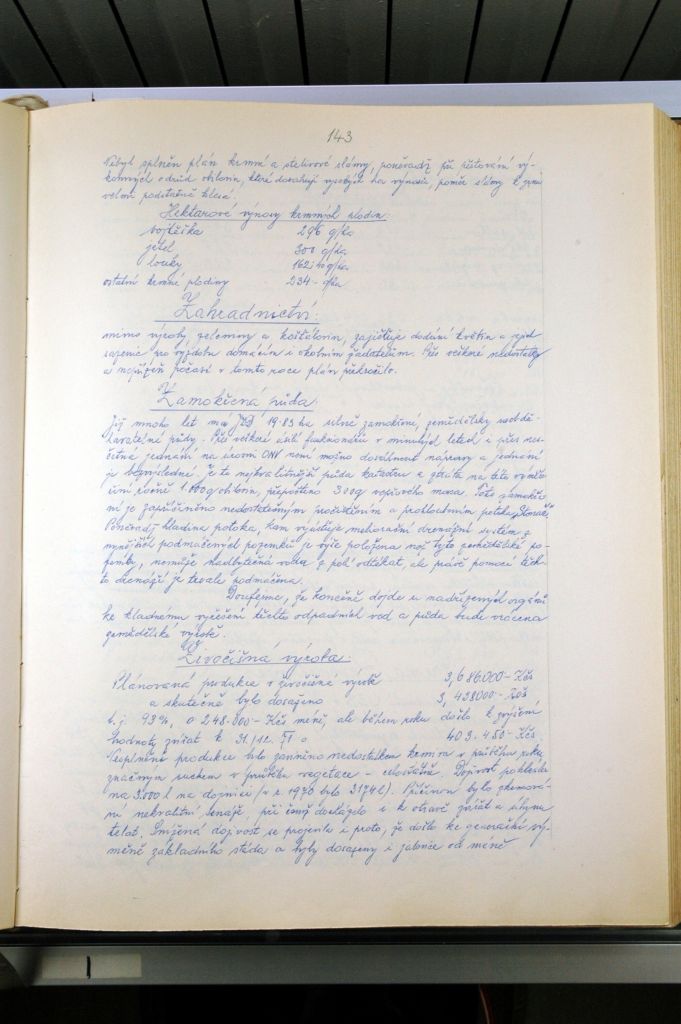 143
Nebyl splněn plán krmné a stelivové slámy, poněvadž při pěstování vý-
konných odrůd obilovin, které dosahují vysokých ha výnosů, poměr slámy k zrnu
velmi podstatně klesá.
Hektarové výnosy krmných plodin:
vojtěška 296 q/ha
jetel 300 q/ha
louky q/ha
ostatní krmné plodiny 234 - q/ha
Zahradnictví:
mimo výroby zeleniny a košťálovin, zajišťuje dodání květin a
sazenic pro výzdobu domácím i okolním žadatelům. Přes veškeré nedostatky
a nepřízeň počasí v tomto roce plán překročilo.
Zamokřená půda:
Již mnoho let má JZD 19.83 ha silně zamokřené, zemědělsky neobdě-
lávatelné půdy. Přes veškeré úsilí funkcionářů v minulých letech i přes nes-
četná jednání na úrovni ONV není možno dosáhnout nápravy a jednání
je bezvýsledné. Je to nejkvalitnější půda katastru a ztráta na této výměře
činí ročně 1.000 q obilovin, přepočteno 300 q vepřového masa. Toto zamokře-
ní je zapříčiněno nedostatečným pročištěním a prohloubením potoka
Poněvadž hladina potoka, kam vyúsťuje meliorační drenážní systém z
nynějších podmáčených pozemků je výše položena než tyto zemědělské po-
zemky, nemůže nadbytečná voda z polí odtékat, ale právě pomocí těch-
to drenáží je trvale podmáčena.
Doufejme, že konečně dojde u nadřízených orgánů
ke kladnému vyřešení těchto odpadních vod a půda bude vrácena
zemědělské výrobě.
Živočišná výroba:
Plánovaná produkce v živočišné výrobě 3,686.000 - Kčs
a skutečně bylo dosaženo 3,438000 - Kčs
t.j. 93%, o 248.000 - Kčs méně, ale během roku došlo k zvýšení
hodnoty zvířat k 31./12. o 403.450 - Kčs
Nesplnění produkce bylo zaviněno nedostatkem krmiva v průběhu roku,
značným suchem v průběhu vegetace - Dojivost poklesla
na 3.000 l na dojnici (v r. 1970 bylo 3174 l). Příčinou bylo zkrmová-
ní nekvalitní senáže, při čemž docházelo i k otravě zvířat a úhynu
telat. Snížená dojivost se projevila i proto, že došlo ke generační vý-
měně základního stáda a byly dosazeny i jalovice od méně